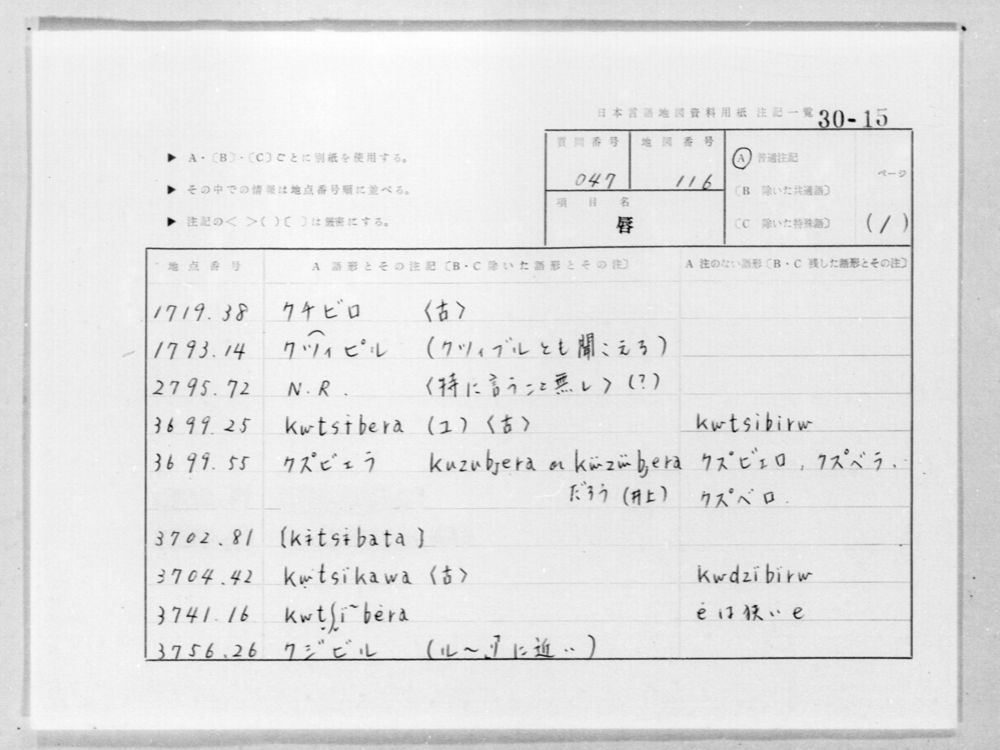 日本言語地図資料用紙 注記一覧 30-15
▶ A・〔B〕・〔C〕ごとに別紙を使用する。
▶ その中での情報は地点番号順に並べる。
▶ 注記の< >( )〔 〕は厳密にする。
質問番号 地図番号
047 116
項目名
唇
Ⓐ 普通注記
〔B 除いた共通語〕
〔C 除いた特殊語〕
ページ
(1)
地点番号 A 語形とその注記〔B・C 除いた語形とその注〕 A 注のない語形〔B・C 残した語形とその注〕
1719.38 クチビロ 〈古〉
1793.14 クツィピル (クツィブルとも聞こえろ)
2795.72 N.R. 〈特に言うこと無し〉(?)
3699.25 kɯtsɨbera (ユ)〈古〉 kɯtsibirɯ
3699.55 クズビェラ kuzubjera or kɯ̈zɯ̈bjera クズビェロ, クズベラ.
だろう (井上) クズベロ.
3702.81 {kɨtsɨbata}
3704.42 kɯtsïkawa 〈古〉 kɯdzïbïrɯ
3741.16 kɯtʃï~bėra ė は狭い e
3756.26 クジビル